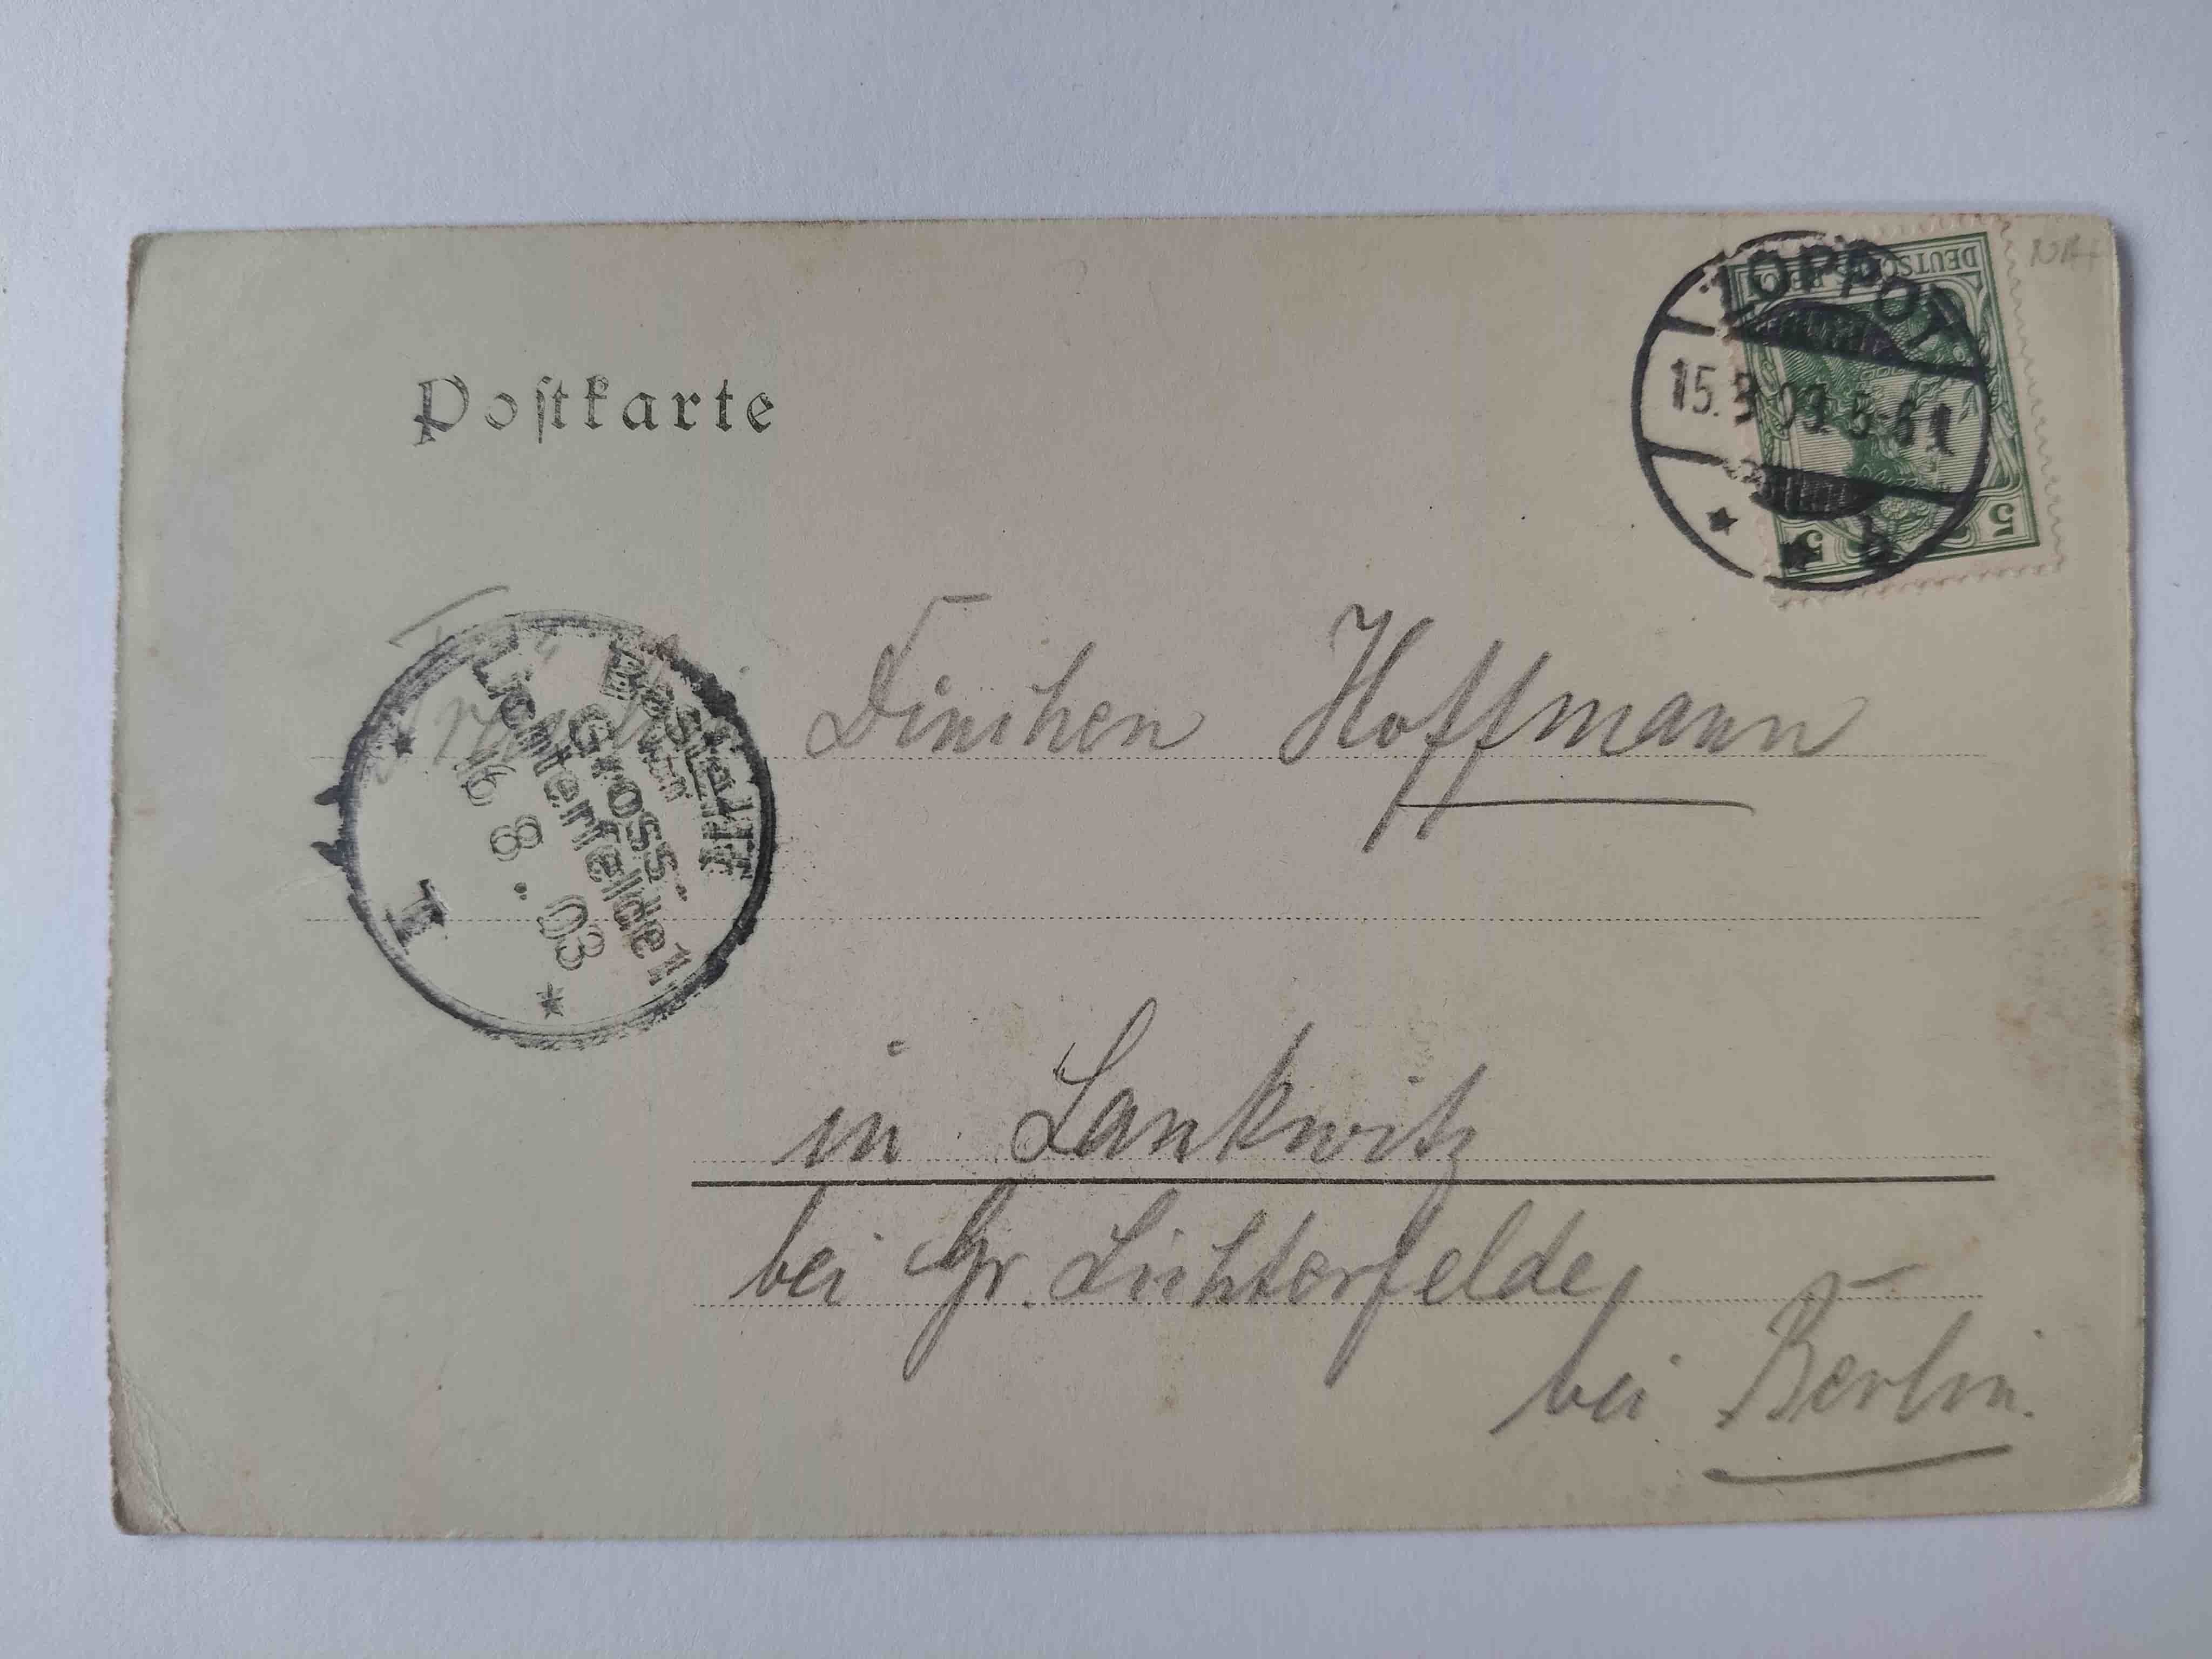 Postkarte
ZOPPOT
15.8.03. 5-6 N
DEUTSCHES REICH
5 5
Fräulein Dinchen Hoffmann
Bestellt
vom
Gross-
Lichterfelde 1
16 8. 03
I
in Lankwitz
bei Gr. Lichterfelde,
bei Berlin.